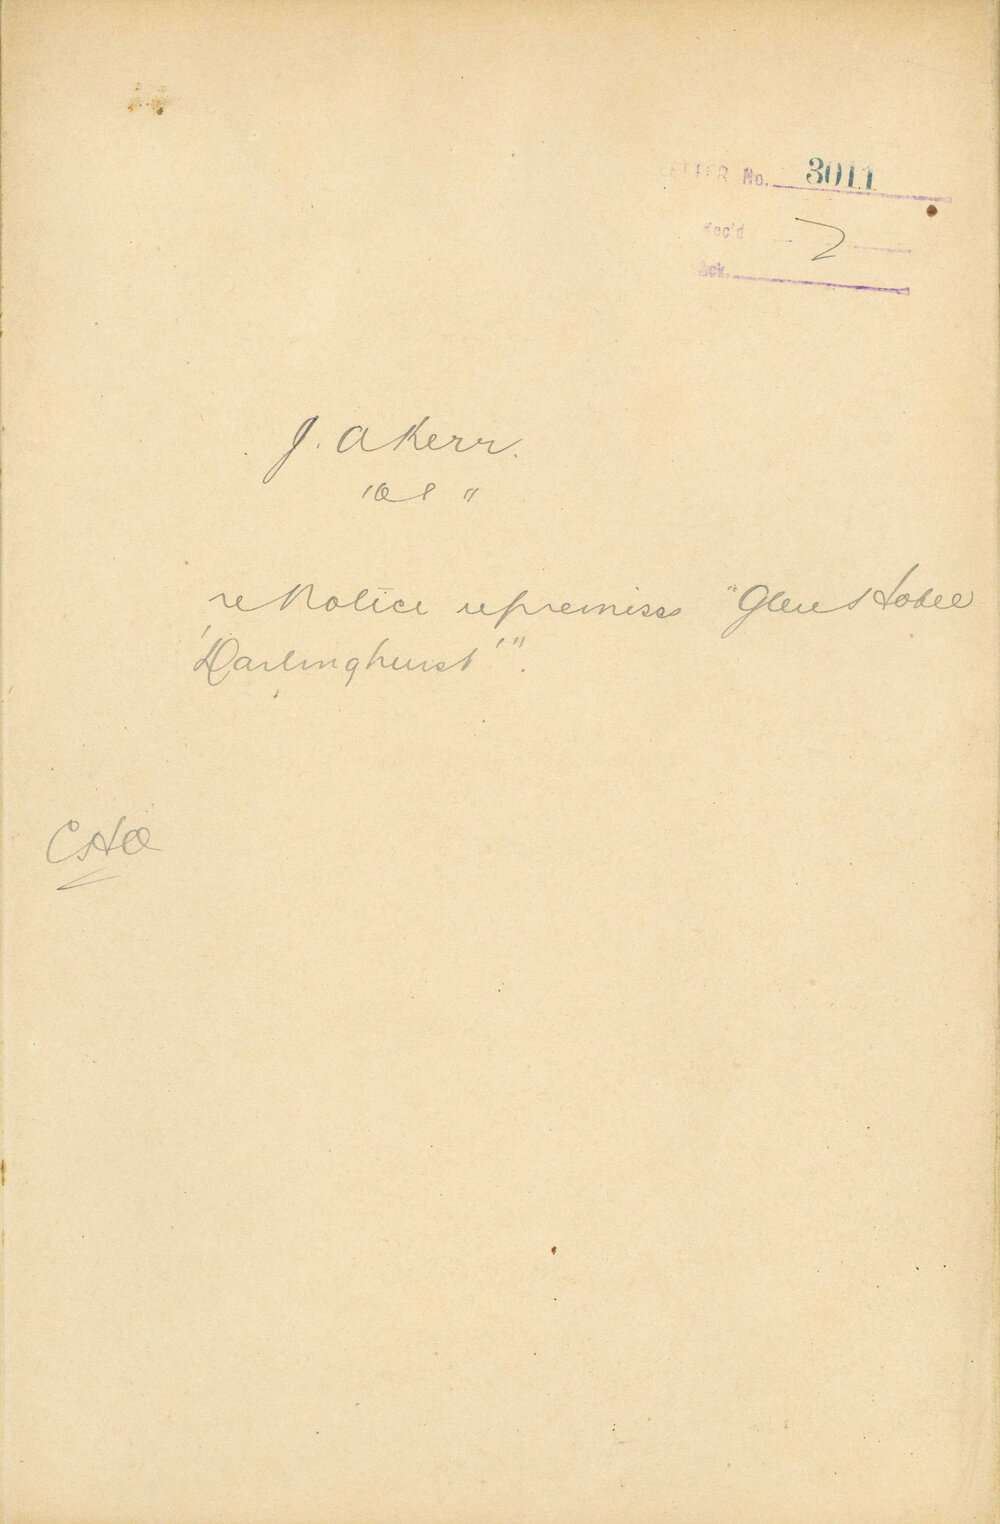 LETTER No. 3011
Rec'd 2
Ack.
J. A Kerr.
re Notice re premises "Glen
'Darlinghurst'".